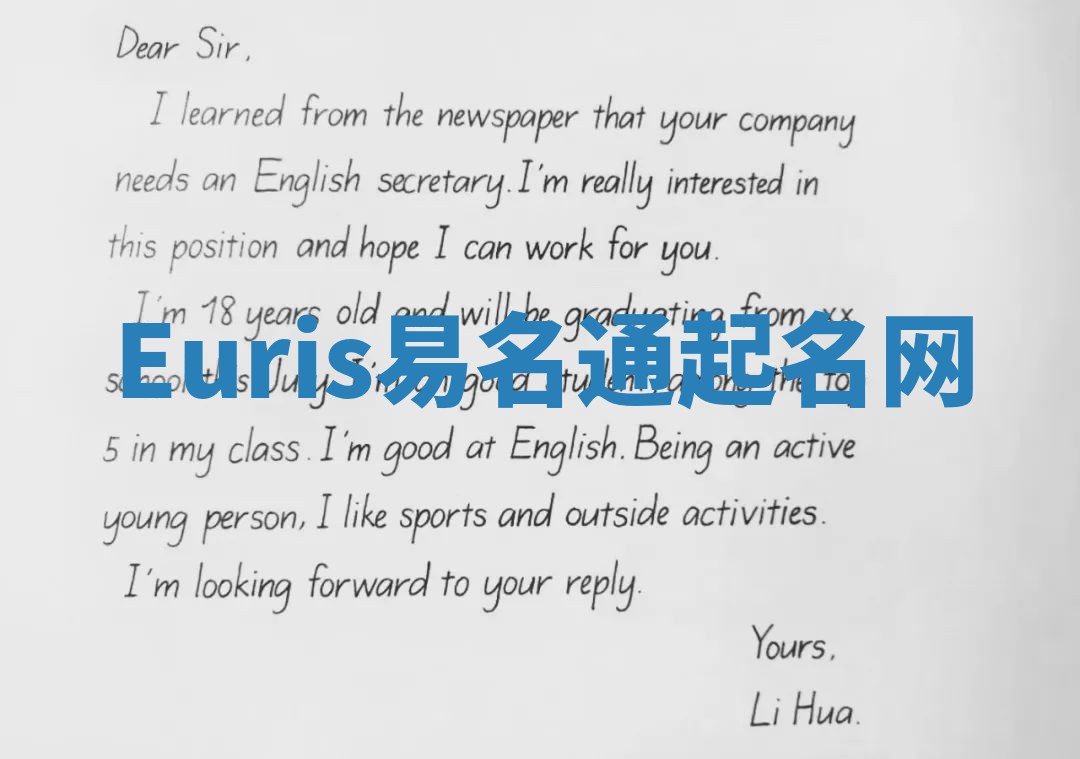 Dear Sir,
I learned from the newspaper that your company
needs an English secretary. I'm really interested in
this position and hope I can work for you.
I'm 18 years old and will be graduating from xx
Euris易名通起名网
school this July. I'm a good student, among the top
5 in my class. I'm good at English. Being an active
young person, I like sports and outside activities.
I'm looking forward to your reply.
Yours,
Li Hua.